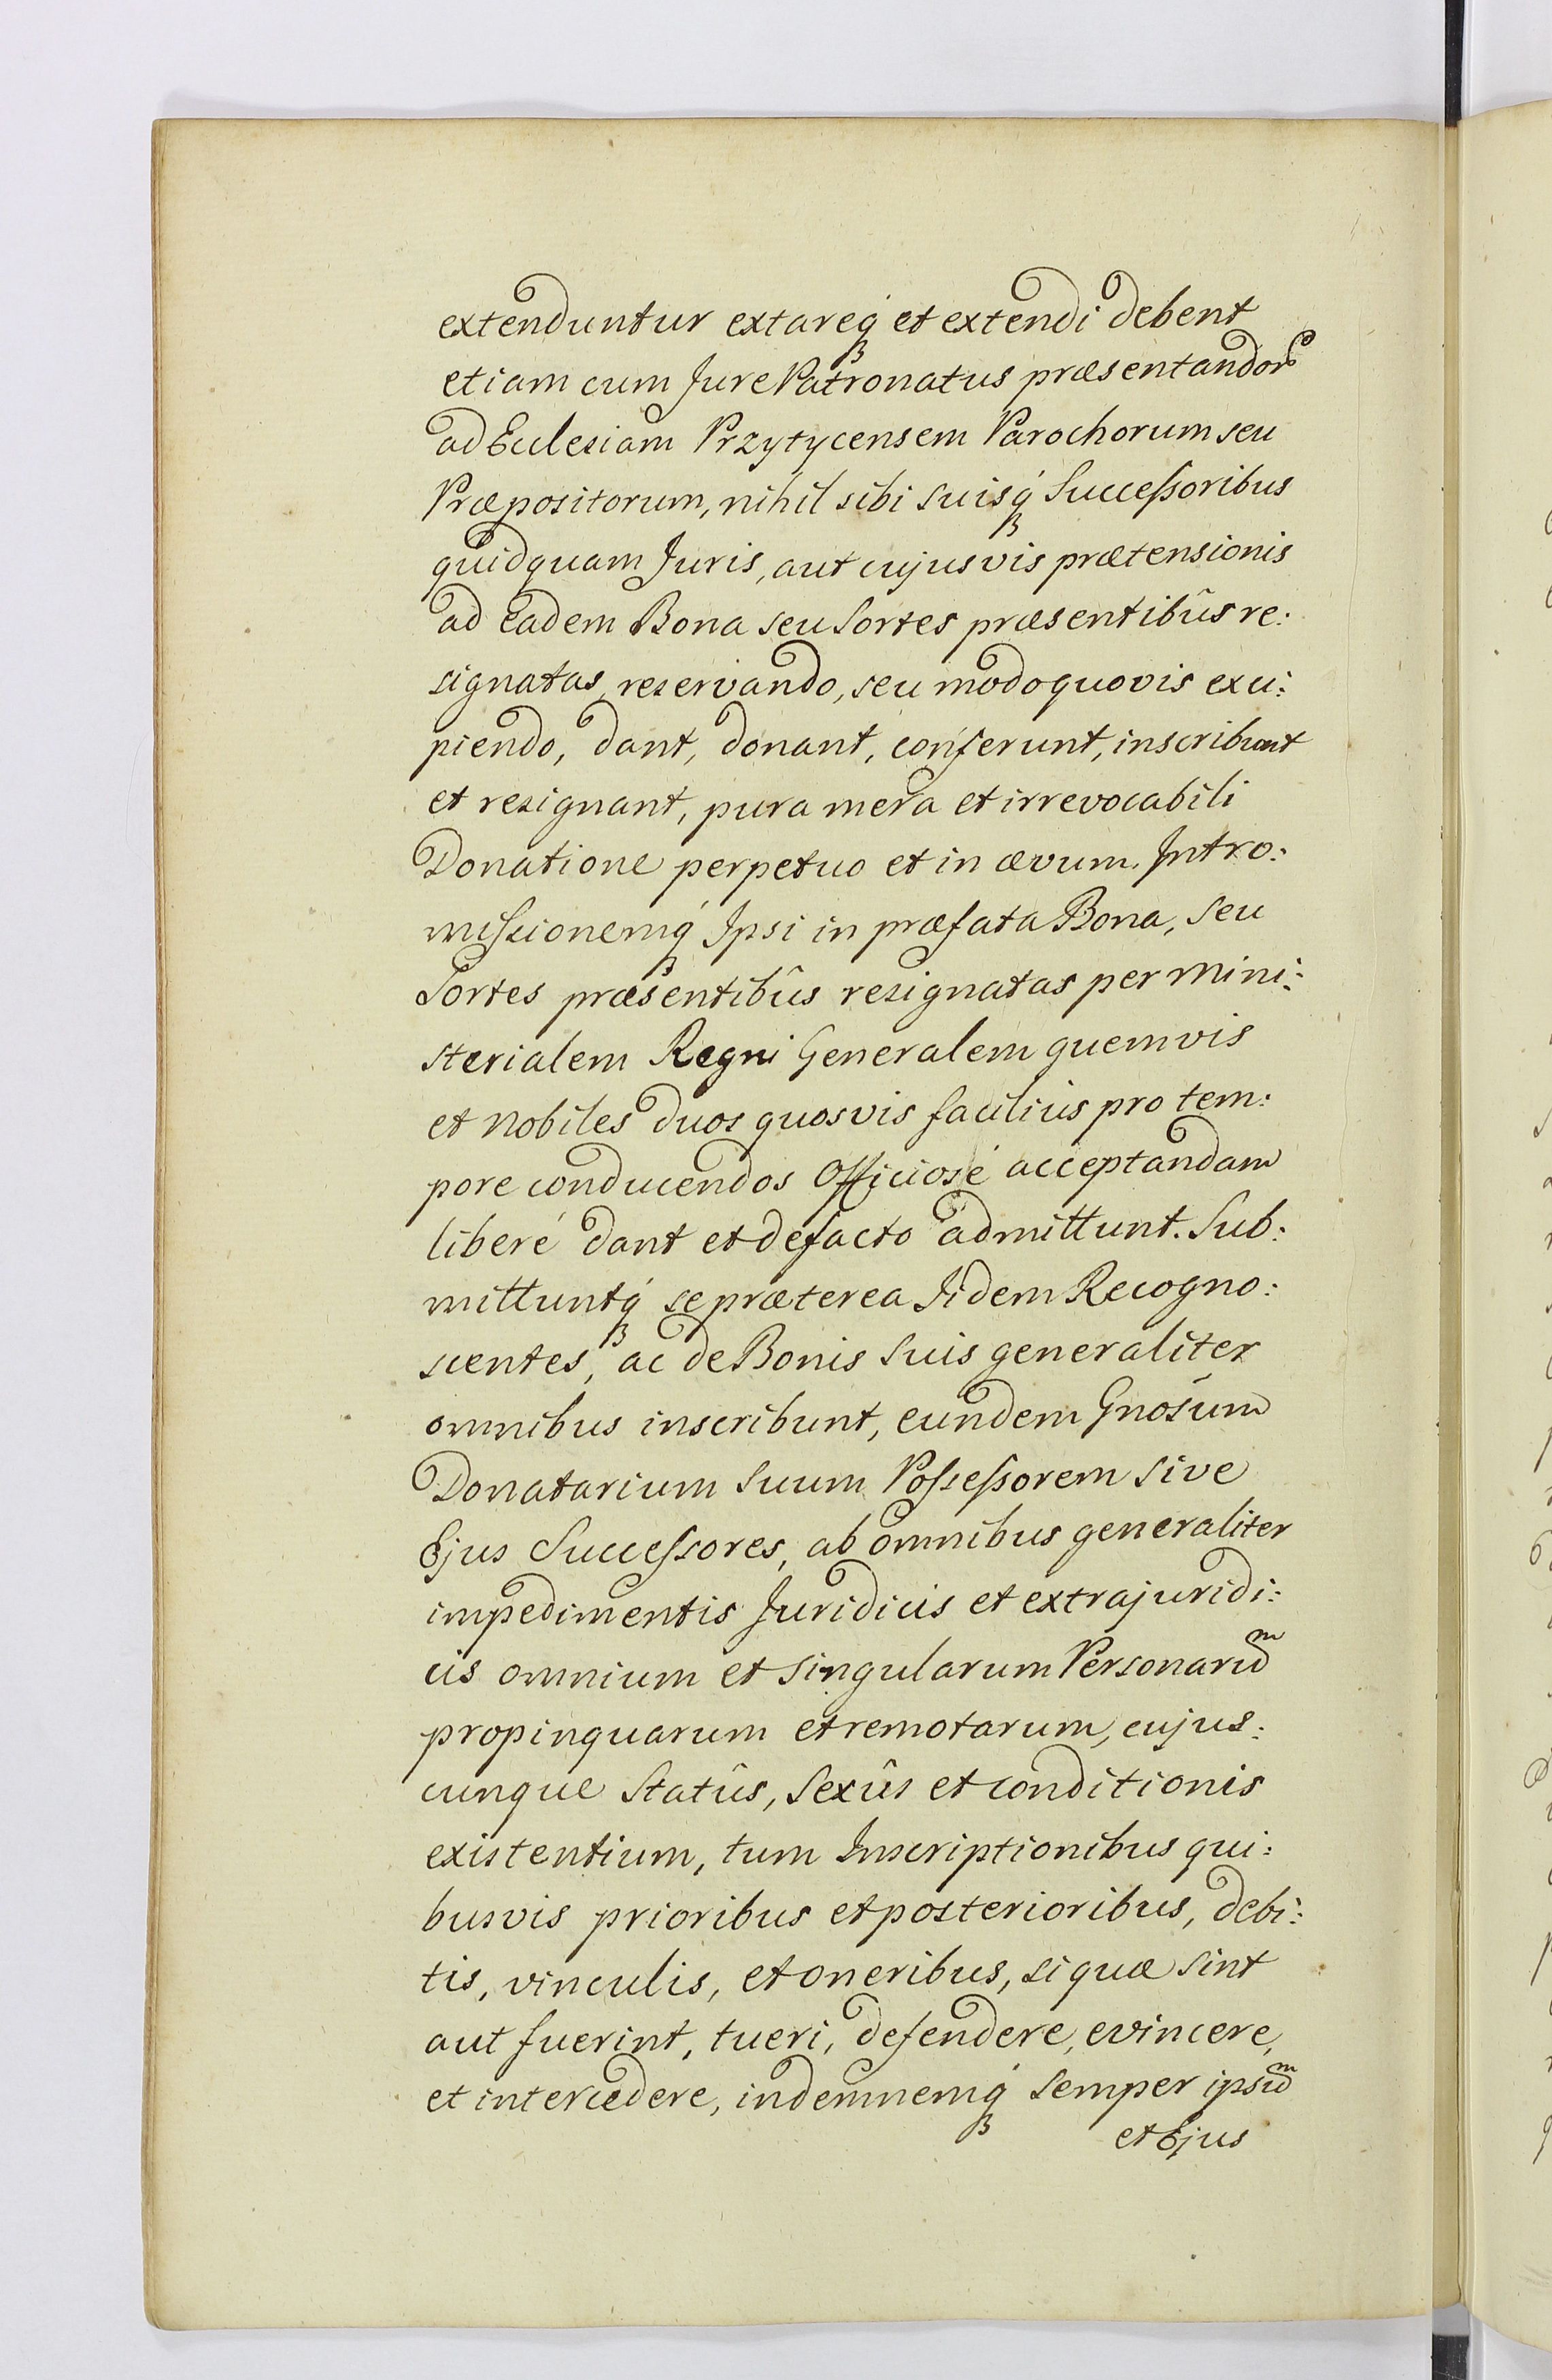 extenduntur extareq́ꝫ et extendi debent
etiam cum Jure Patronatus præsentandorꝭ
ad Ecclesiam Przytycensem Parochorum seu
Præpositorum, nihil sibi suisq́ꝫ Succeſsoribus
quidquam Juris, aut cujusvis prætensionis
ad Eadem Bona seu Sortes præsentibûs re:
signatas, reservando, seu modo quovis exci:
piendo, dant, donant, conferunt, inscribunt
et resignant, pura mera et irrevocabili
Donatione perpetuo et in ævum. Intro:
miſsionemq́ꝫ Ipsi in præfata Bona, seu
Sortes præsentibûs resignatas per Mini:
sterialem Regni Generalem quemvis
et Nobiles duos quosvis facilius pro tem:
pore conducendos Officiosé acceptandam
liberé dant et defacto admittunt. Sub:
mittuntq́ꝫ se præterea Jidem Recogno:
scentes, ac de Bonis suis generaliter
omnibus inscribunt, eundem Gnosum
Donatarium suum Poſseſsorem sive
Ejus Succeſsores, ab omnibus generaliter
impedimentis Juridicis et extrajuridi:
cis omnium et singularum Personarum̃
propinquarum et remotarum, cujus:
cunque Statûs, Sexûs et conditionis
existentium, tum Inscriptionibus qui:
busvis prioribus et posterioribus, debi:
tis, vinculis, et oneribus, si quæ sint
aut fuerint, tueri, defendere, evincere,
et intercedere, indemnemq́ꝫ semper ipsum̃
et Ejus